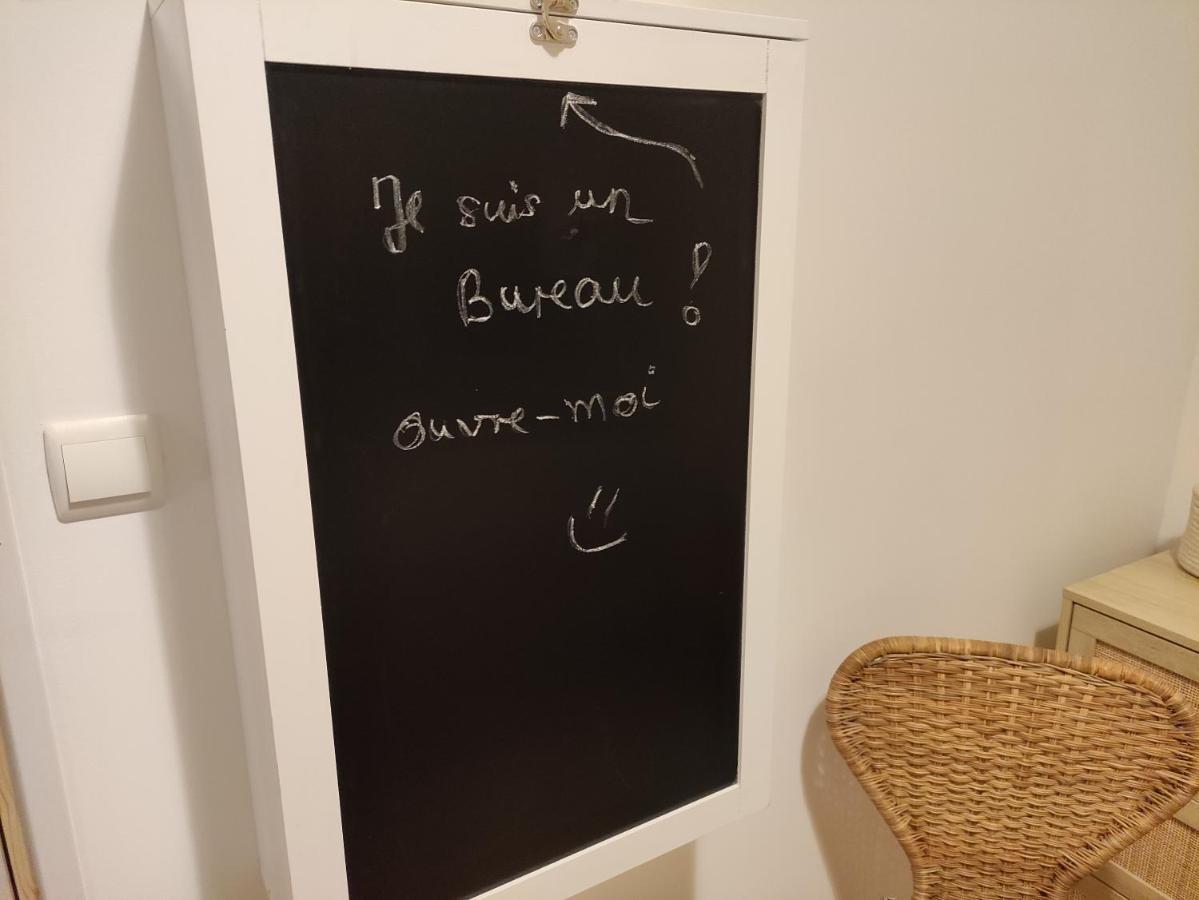 Je suis un
Bureau !
ouvre-moi